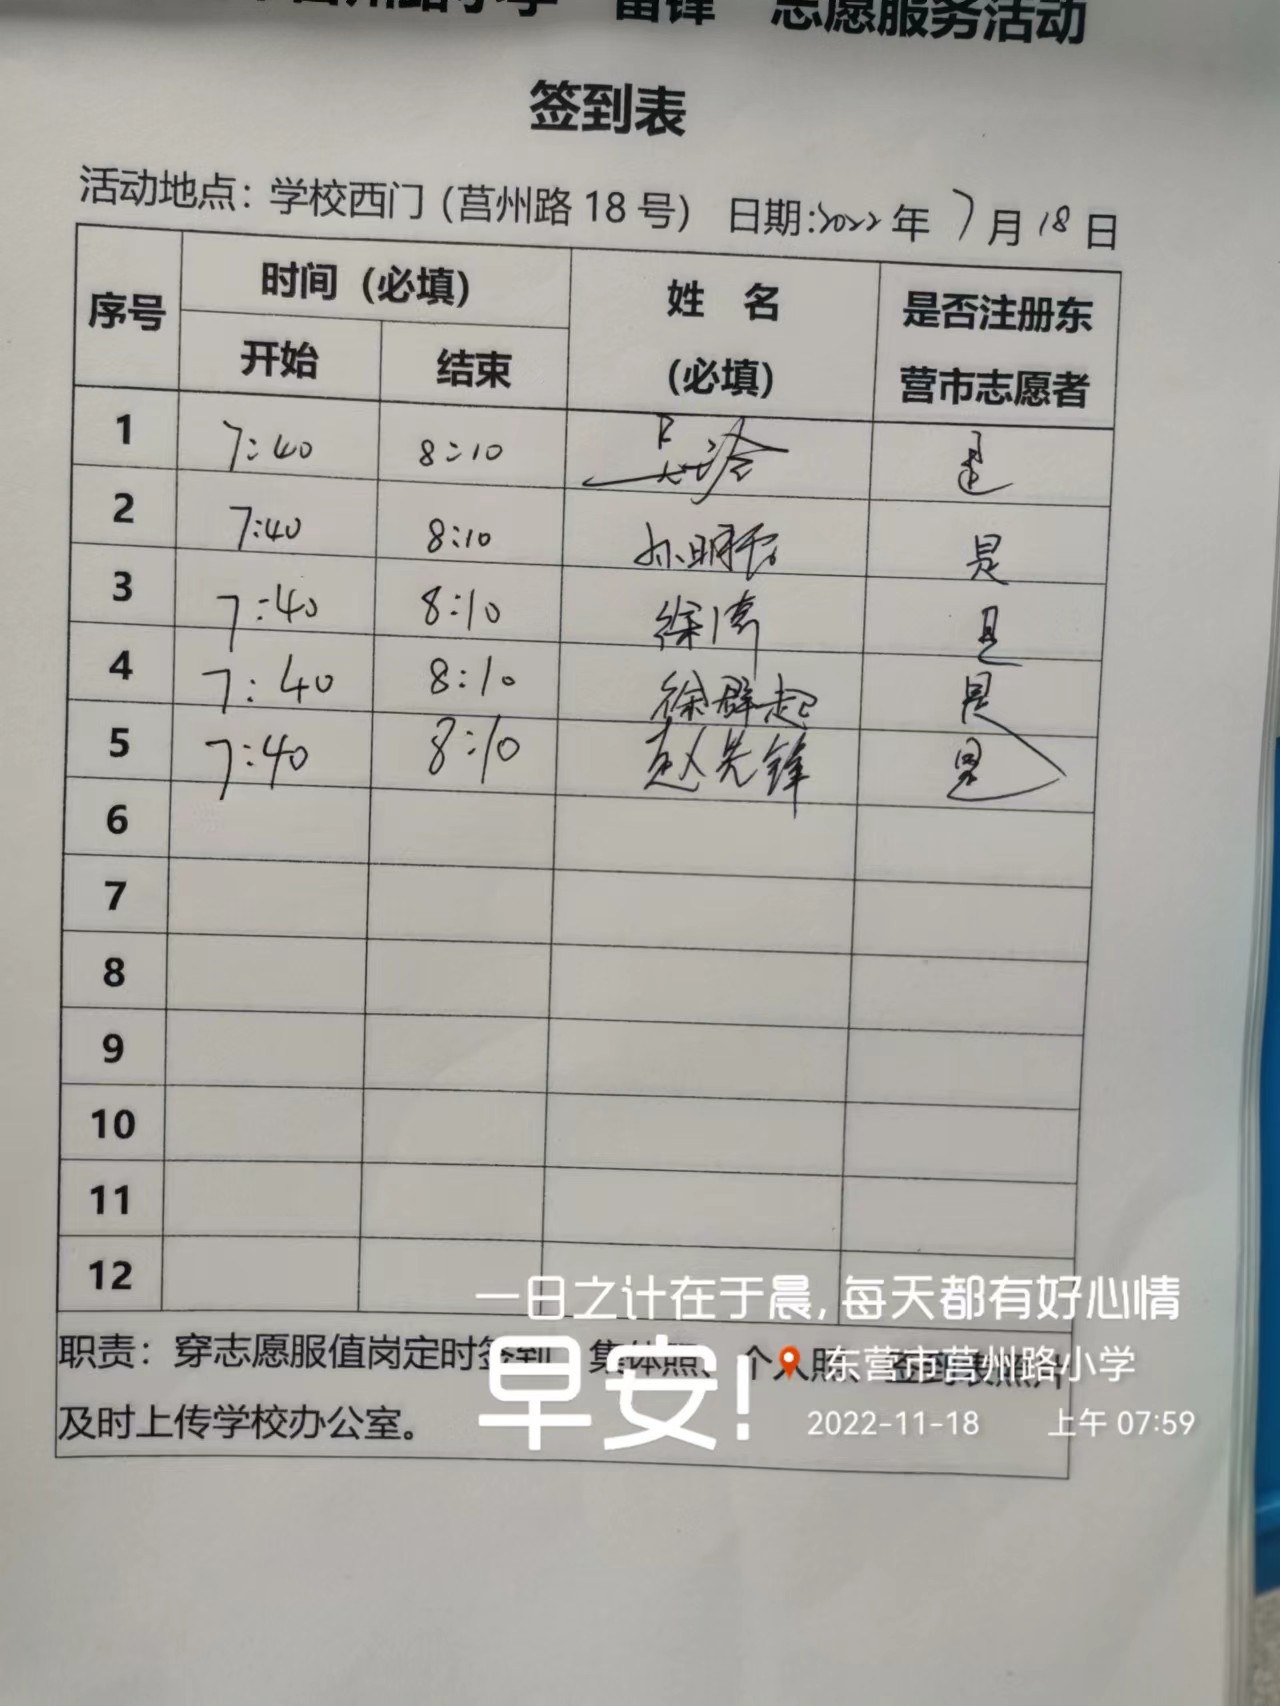 莒州路小学“雷锋”志愿服务活动
签到表
活动地点：学校西门（莒州路 18 号） 日期:2022 年 7 月 18 日
序号 时间（必填） 姓 名 (必填) 是否注册东营市志愿者
开始 结束
1 7:40 8:10 是
2 7:40 8:10 是
3 7:40 8:10 徐 是
4 7:40 8:10 徐群起 是
5 7:40 8:10 赵先锋 是
6
7
8
9
10
11
12
一日之计在于晨,每天都有好心情
职责：穿志愿服值岗定时签到、集体照、个人照、签到表照片
及时上传学校办公室。
早安!
东营市莒州路小学
2022-11-18 上午 07:59